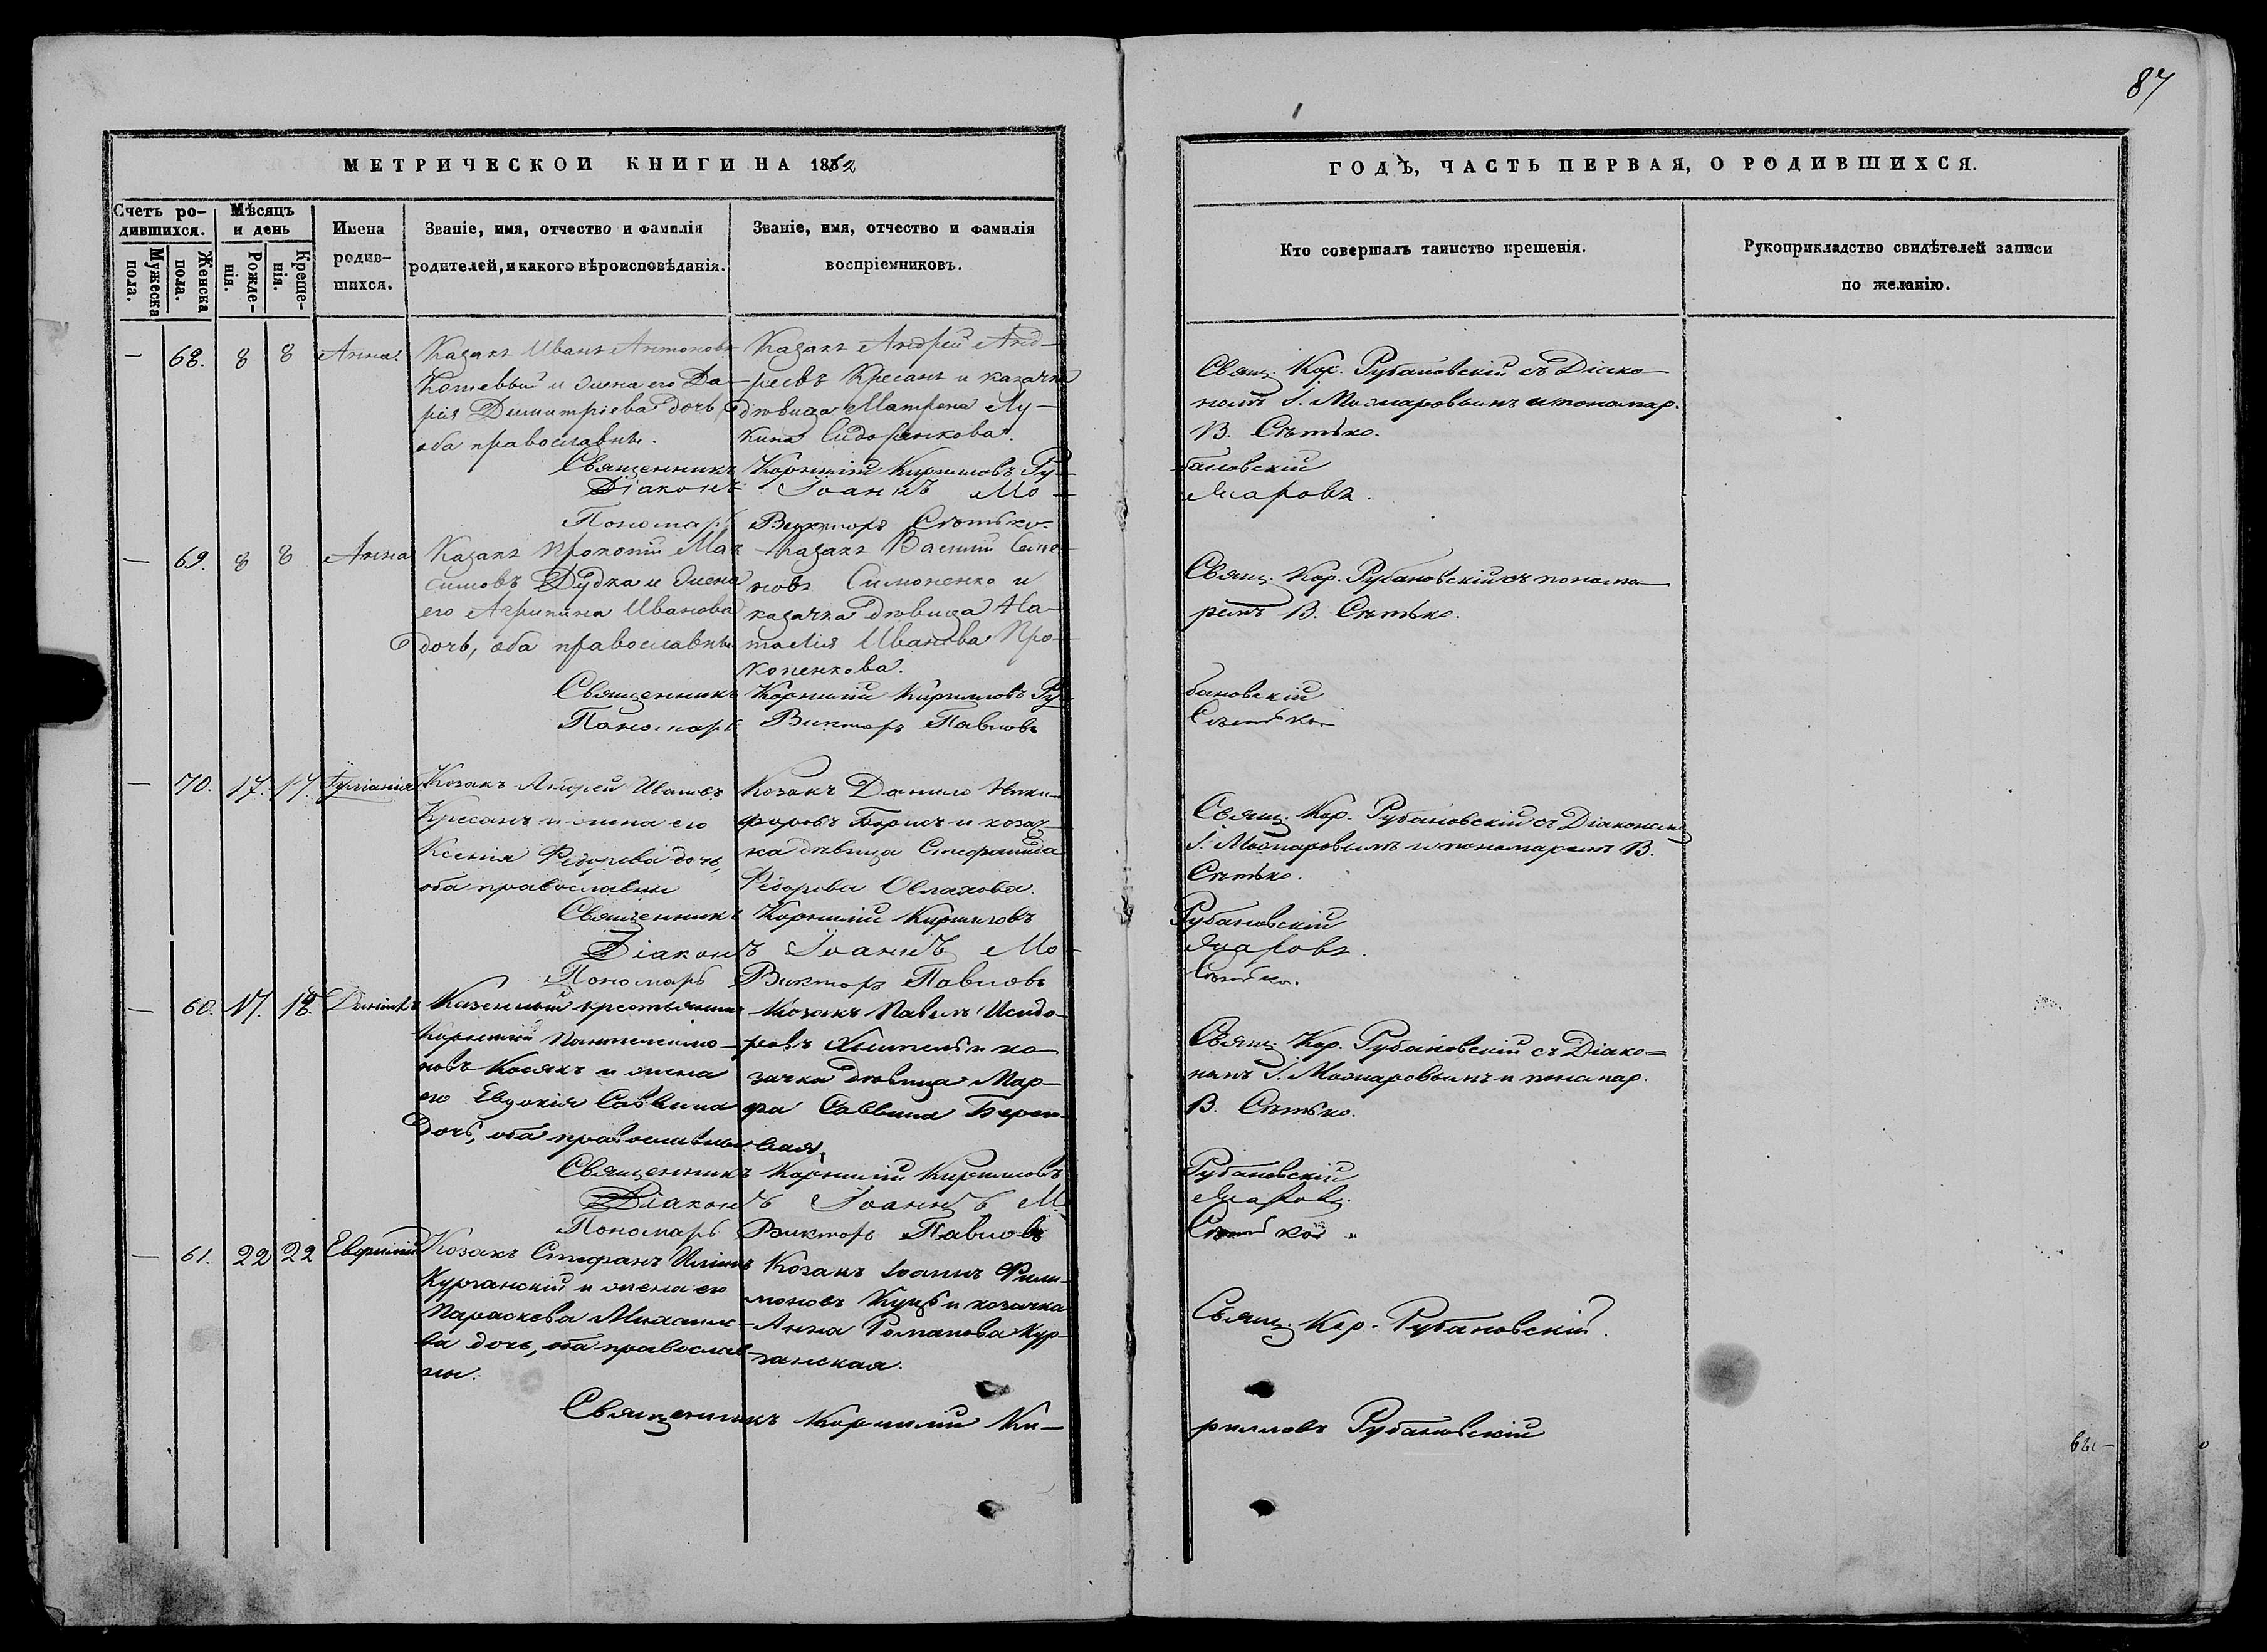 87
МЕТРИЧЕСКОЙ КНИГИ НА 1862
ГОДЪ, ЧАСТЬ ПЕРВАЯ, О РОДИВШИХСЯ.
Счетъ ро-
дившихся.
Мужеска
пола.
Женска
пола.
Мѣсяцъ
и день
Рожде-
нія.
Креще-
нія.
Имена
родив-
шихся.
Званіе, имя, отчество и фамилія
родителей, и какого вѣроисповѣданія.
Званіе, имя, отчество и фамилія
воспріемниковъ.
Кто совершалъ таинство крещенія.
Рукоприкладство свидѣтелей записи
по желанію.
— 68. 8 8 Анна.
Казакъ Иванъ Антоновъ
Кошевый и жена его Да-
рія Димитріева дочь,
оба православны.
Казакъ Андрей Анд-
реевъ Кресанъ и казачка
дѣвица Матрона Лу-
кина Сидоренкова.
Свящ. Кор. Рубановскій съ Діако-
номъ І. Можаровымъ и пономар.
В. Сѣтько.
Священникъ Корнилій Кирилловъ Ру-
бановскій
Діаконъ Іоаннъ Мо-
жаровъ.
Пономарь Викторъ Сѣтько.
— 69. 8 8 Анна
Казакъ Прокопій Мак
симовъ Дудка и жена
его Агрипина Иванова
дочь, оба православны
Казакъ Василій Семе
новъ Симоненко и
казачка дѣвица На-
талія Иванова Про-
копенкова.
Свящ. Кор. Рубановскій съ понома-
ремъ В. Сѣтько.
Священникъ Корнилій Кирилловъ Ру-
бановскій
Пономарь Викторъ Павловъ
Сѣтько
— 70. 17. 17.
Козакъ Андрей Ивановъ
Кресанъ и жена его
Ксенія Ѳедорова дочь,
оба православны
Козакъ Данило Ники-
форовъ Борисъ и козач-
ка дѣвица Стефанида
Ѳедорова Овлахова.
Свящ. Кор. Рубановскій съ Діакономъ
І. Можаровымъ и пономаремъ В.
Сѣтько.
Священникъ Корнилій Кирилловъ
Рубановскій
Діаконъ Іоаннъ Мо-
жаровъ.
Пономарь Викторъ Павловъ
Сѣтько.
— 60. 17. 18. Даніилъ
Казенный крестьянинъ
Корнилій Пантелеимо-
новъ Косякъ и жена
его Евдокія Саввина
дочь, оба православны
Козакъ Павелъ Исидо-
ровъ и ко-
зачка дѣвица Мар-
фа Саввина
Свящ. Кор. Рубановскій съ Діако=
номъ І. Можаровымъ и пономар.
В. Сѣтько.
Священникъ Корнилій Кирилловъ
Рубановскій
Діаконъ Іоаннъ М.
жаровъ.
Пономарь Викторъ Павловъ
Сѣтько
— 61. 22 22 Евфимій
Козакъ Стефанъ Иліинъ
Курганскій и жена его
Параскева Михаиле-
ва дочь, оба православ-
ны.
Козакъ Іоаннъ Фили-
моновъ Куцъ и козачка
Анна Романова Кур-
ганская.
Свящ. Кор. Рубановскій.
Священникъ Корнилій Ки-
рилловъ Рубановскій
вы-